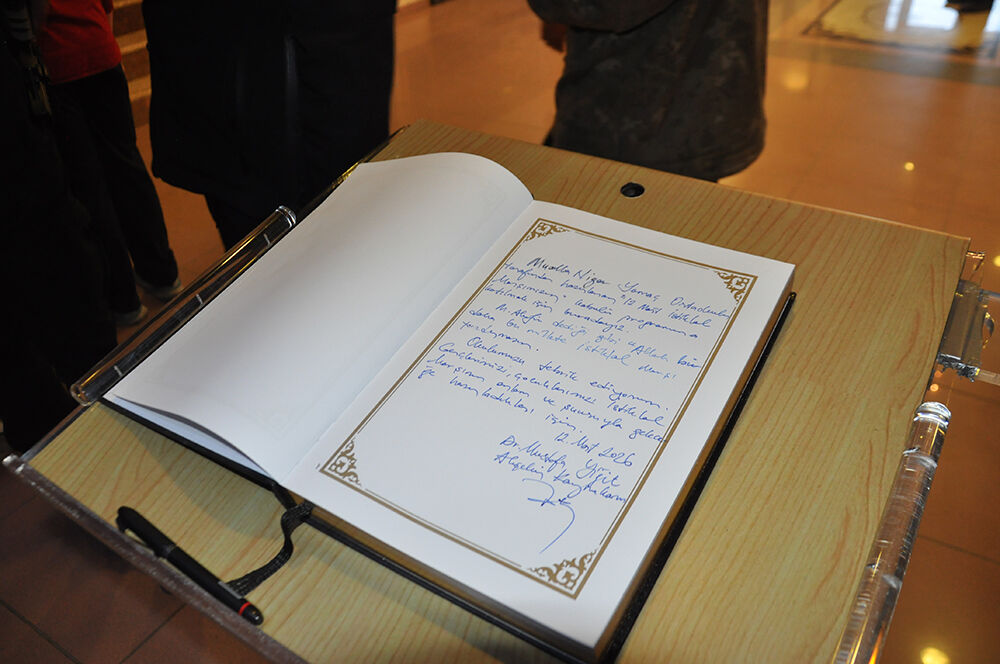 Mualla Nigar Yamaç Ortaokulu
tarafından hazırlanan "12 Mart İstiklal
Marşımızın" kabulü programına
katılmak için buradayız.
M. Akif'in dediği gibi "Allah bir
daha bu millete İstiklal Marşı
yazdırmasın.
Okulumuzu tebrik ediyorum.
Gençlerimizi, çocuklarımızı İstiklal
Marşının anlam ve şuuruyla gelece
ğe hazırladıkları için.
12. Mart 2026
Dr. Mustafa Yiğit
Kaymakamı